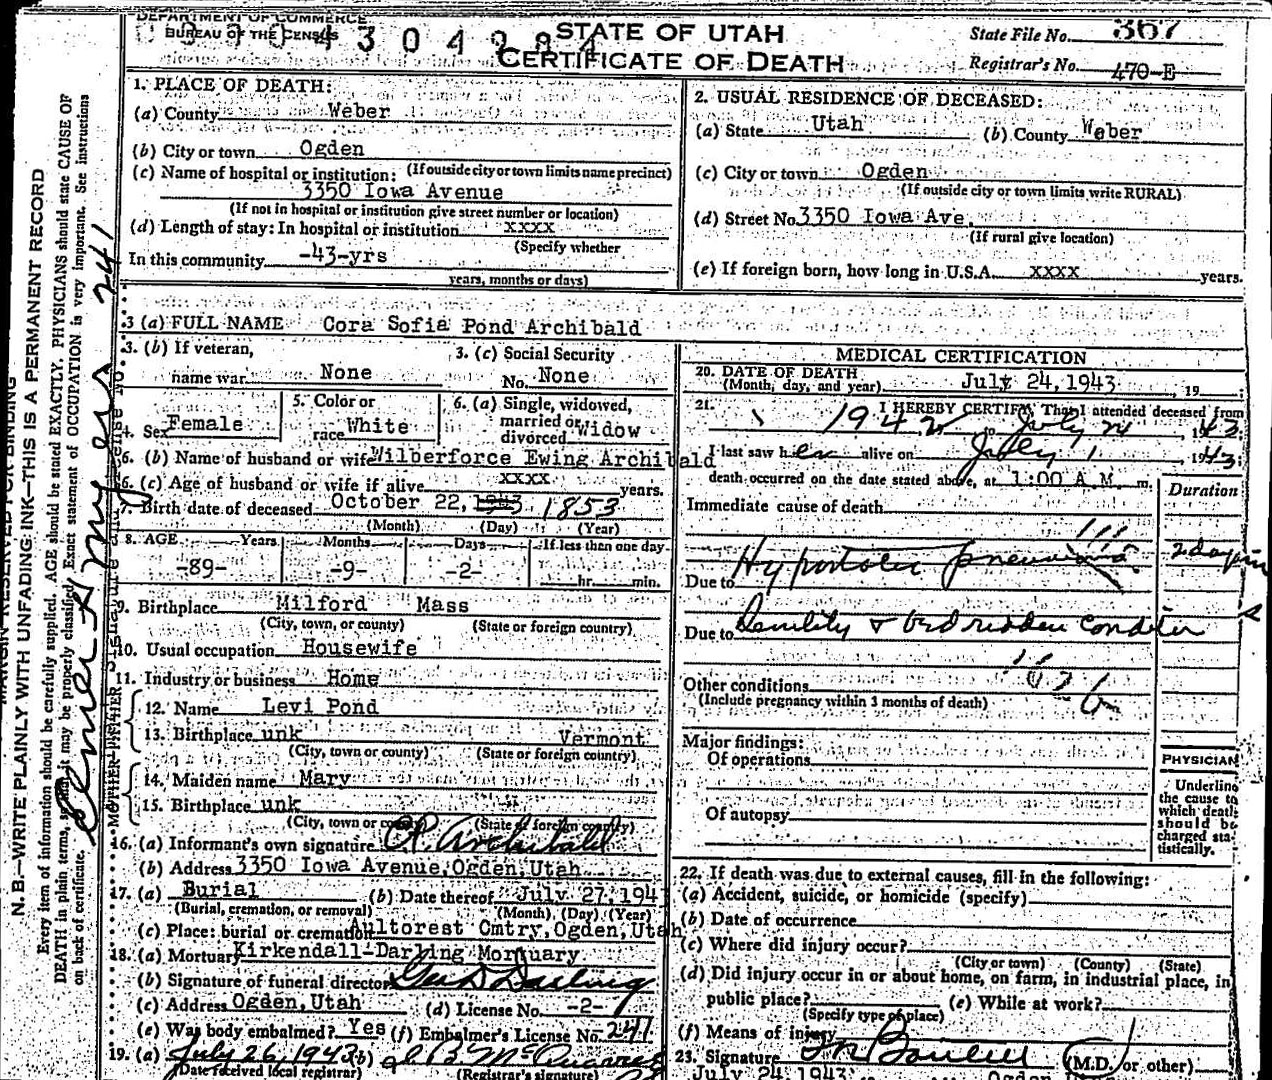 DEPARTMENT OF COMMERCE
BUREAU OF THE CENSUS
STATE OF UTAH
CERTIFICATE OF DEATH
State File No. 367
Registrar's No. 470-E
1. PLACE OF DEATH:
(a) County Weber
(b) City or town Ogden
(If outside city or town limits name precinct)
(c) Name of hospital or institution:
3350 Iowa Avenue
(If not in hospital or institution give street number or location)
(d) Length of stay: In hospital or institution xxxx
(Specify whether
In this community -43-yrs
years, months or days)
2. USUAL RESIDENCE OF DECEASED:
(a) State Utah (b) County Weber
(c) City or town Ogden
(If outside city or town limits write RURAL)
(d) Street No. 3350 Iowa Ave.
(If rural give location)
(e) If foreign born, how long in U.S.A. xxxx years.
3 (a) FULL NAME Cora Sofia Pond Archibald
3. (b) If veteran,
name war None
3. (c) Social Security
No. None
4. Sex Female
5. Color or
race White
6. (a) Single, widowed,
married or
divorced Widow
6. (b) Name of husband or wife Wilberforce Ewing Archibald
6. (c) Age of husband or wife if alive xxxx years.
7. Birth date of deceased October 22, 1943 1853
(Month) (Day) (Year)
8. AGE Years Months Days If less than one day
-89- -9- -2- hr. min.
9. Birthplace Milford Mass
(City, town, or county) (State or foreign country)
10. Usual occupation Housewife
11. Industry or business Home
FATHER
12. Name Levi Pond
13. Birthplace unk Vermont
(City, town or county) (State or foreign country)
MOTHER
14. Maiden name Mary
15. Birthplace unk
(City, town or county) (State or foreign country)
16. (a) Informant's own signature Archibald
(b) Address 3350 Iowa Avenue, Ogden, Utah
17. (a) Burial (b) Date thereof July 27, 194
(Burial, cremation, or removal) (Month) (Day) (Year)
(c) Place: burial or cremation Aultorest Cmtry, Ogden, Utah
18. (a) Mortuary Kirkendall-Darling Mortuary
(b) Signature of funeral director Geo D Darling
(c) Address Ogden, Utah (d) License No. -2-
(e) Was body embalmed? Yes (f) Embalmer's License No. 241
19. (a) July 26, 1943 (b)
(Date received local registrar) (Registrar's signature)
MEDICAL CERTIFICATION
20. DATE OF DEATH
(Month, day, and year) July 24, 1943 19
21. I HEREBY CERTIFY, That I attended deceased from
1942 to July 24 1943
I last saw her alive on July 1 1943
death occurred on the date stated above, at 1:00 A.M. m.
Duration
Immediate cause of death
Due to Hypostatic pneumonia
Due to Senility & bedridden condition
Other conditions
(Include pregnancy within 3 months of death)
Major findings:
Of operations
Of autopsy
PHYSICIAN
Underline
the cause to
which death
should be
charged sta-
tistically.
22. If death was due to external causes, fill in the following:
(a) Accident, suicide, or homicide (specify)
(b) Date of occurrence
(c) Where did injury occur?
(City or town) (County) (State)
(d) Did injury occur in or about home, on farm, in industrial place, in
public place? (e) While at work?
(Specify type of place)
(f) Means of injury
23. Signature (M.D. or other)
July 24, 1943 Ogden
N. B.—WRITE PLAINLY WITH UNFADING INK—THIS IS A PERMANENT RECORD
Every item of information should be carefully supplied. AGE should be stated EXACTLY. PHYSICIANS should state CAUSE OF
DEATH in plain terms, so that it may be properly classified. Exact statement of OCCUPATION is very important. See instructions
on back of certificate.